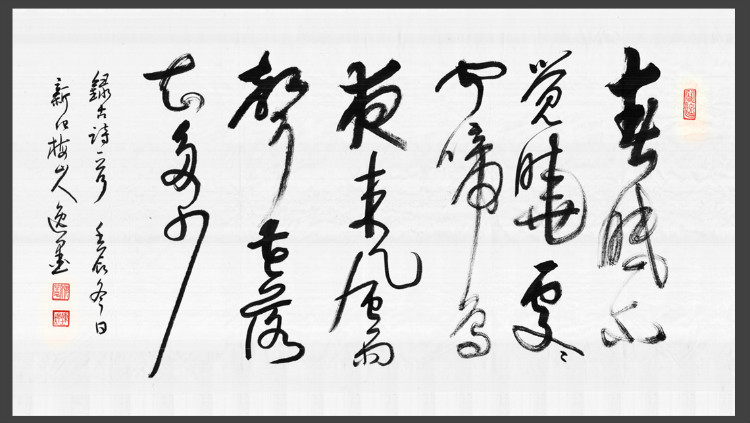 春眠不
覺曉處々
聞啼鳥
夜来風雨
聲花落
知多少
錄古詩一首 壬辰冬日
新江梅山人逸墨